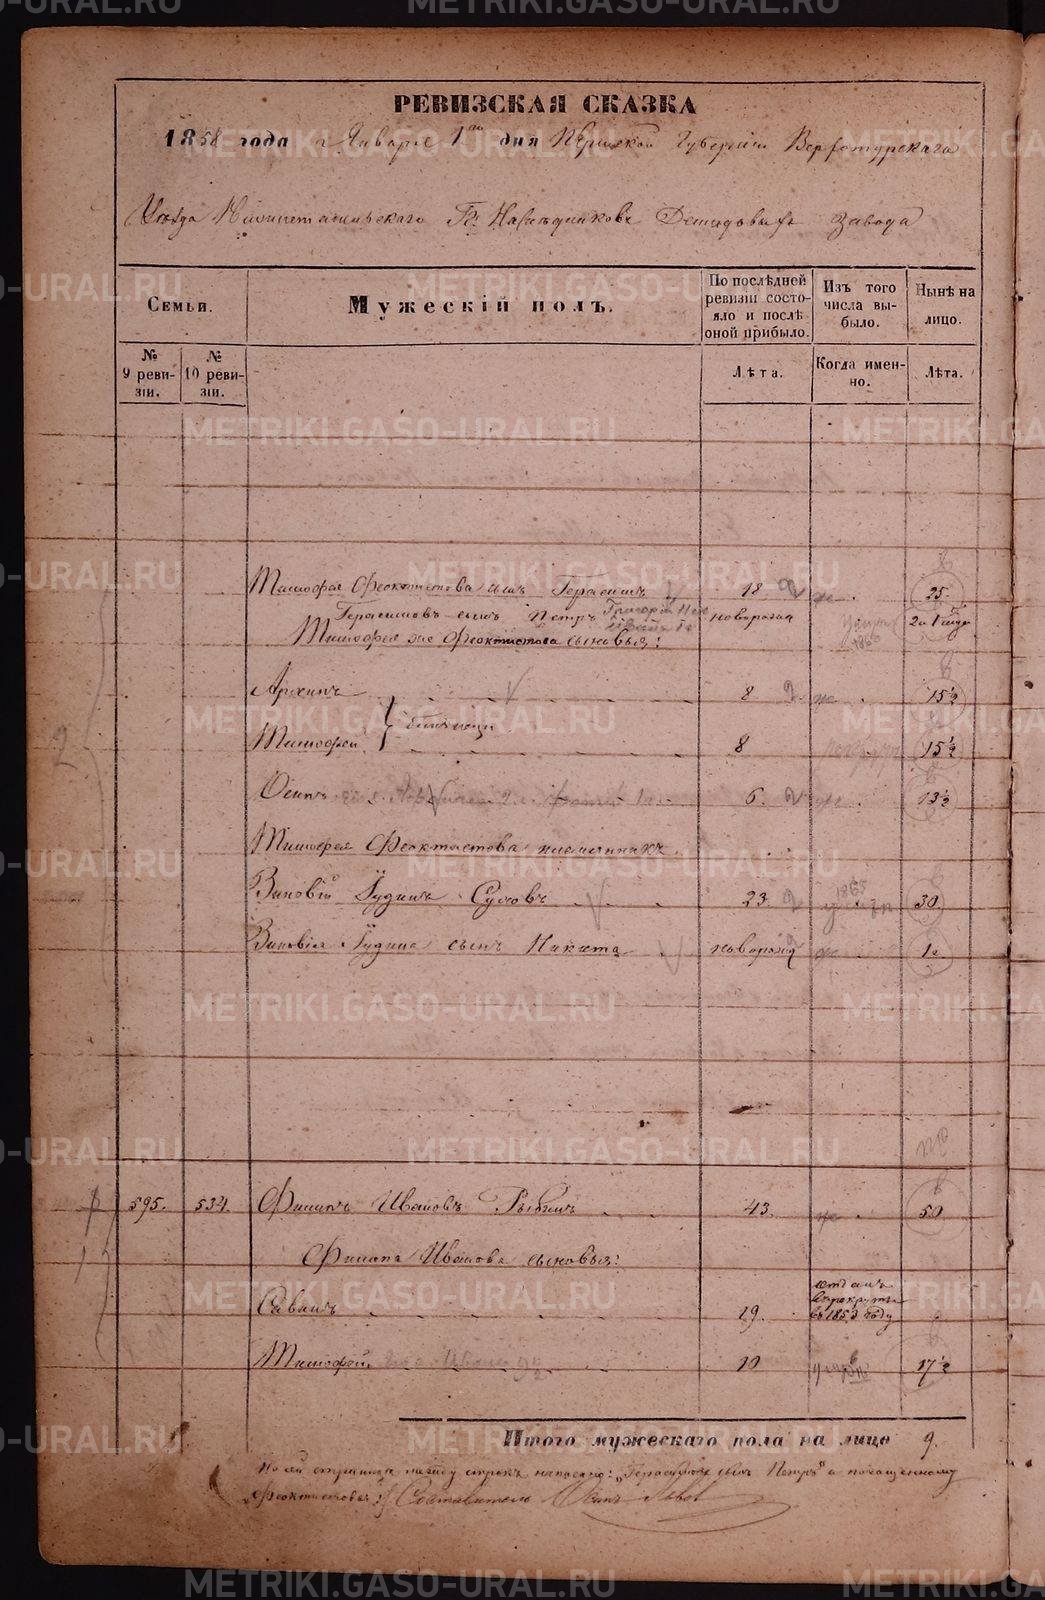 METRIKI.GASO-URAL.RU
РЕВИЗСКАЯ СКАЗКА
1858 года Января 1го дня Пермской Губернии Верхотурскаго
Уѣзда Нижнетагильскаго Гг Наслѣдниковъ Демидовыхъ Завода
Семьи.
Мужескій полъ.
По послѣдней ревизіи состояло и послѣ оной прибыло.
Изъ того числа выбыло.
Нынѣ на лицо.
№ 9 ревизіи.
№ 10 ревизіи.
Лѣта.
Когда именно.
Лѣта.
Тимофея Феоктистова сынъ Герасимъ 18 25.
Герасимовъ сынъ Петръ Григорій новорожд
Тимофея же Феоктистова сыновья:
Архипъ 8 15½
Тимофей близнецы 8 15½
Осипъ 6. 13½
Тимофея Феоктистова племянникъ
Зиновій Іудинъ 23 1865 30
Зиновія Іудина сынъ Никита новорожд 1
595. 534. Филипъ Ивановъ 43. 50
Филипа Иванова сыновья:
Саванъ 19. отданъ въ рекруты въ 185 году
Тимофей 10 17½
Итого мужескаго пола на лицо 9.
По сей страницѣ между строкъ написано: „Герасимовъ сынъ Петръ" а почищенному
„Феоктистова" Составитель